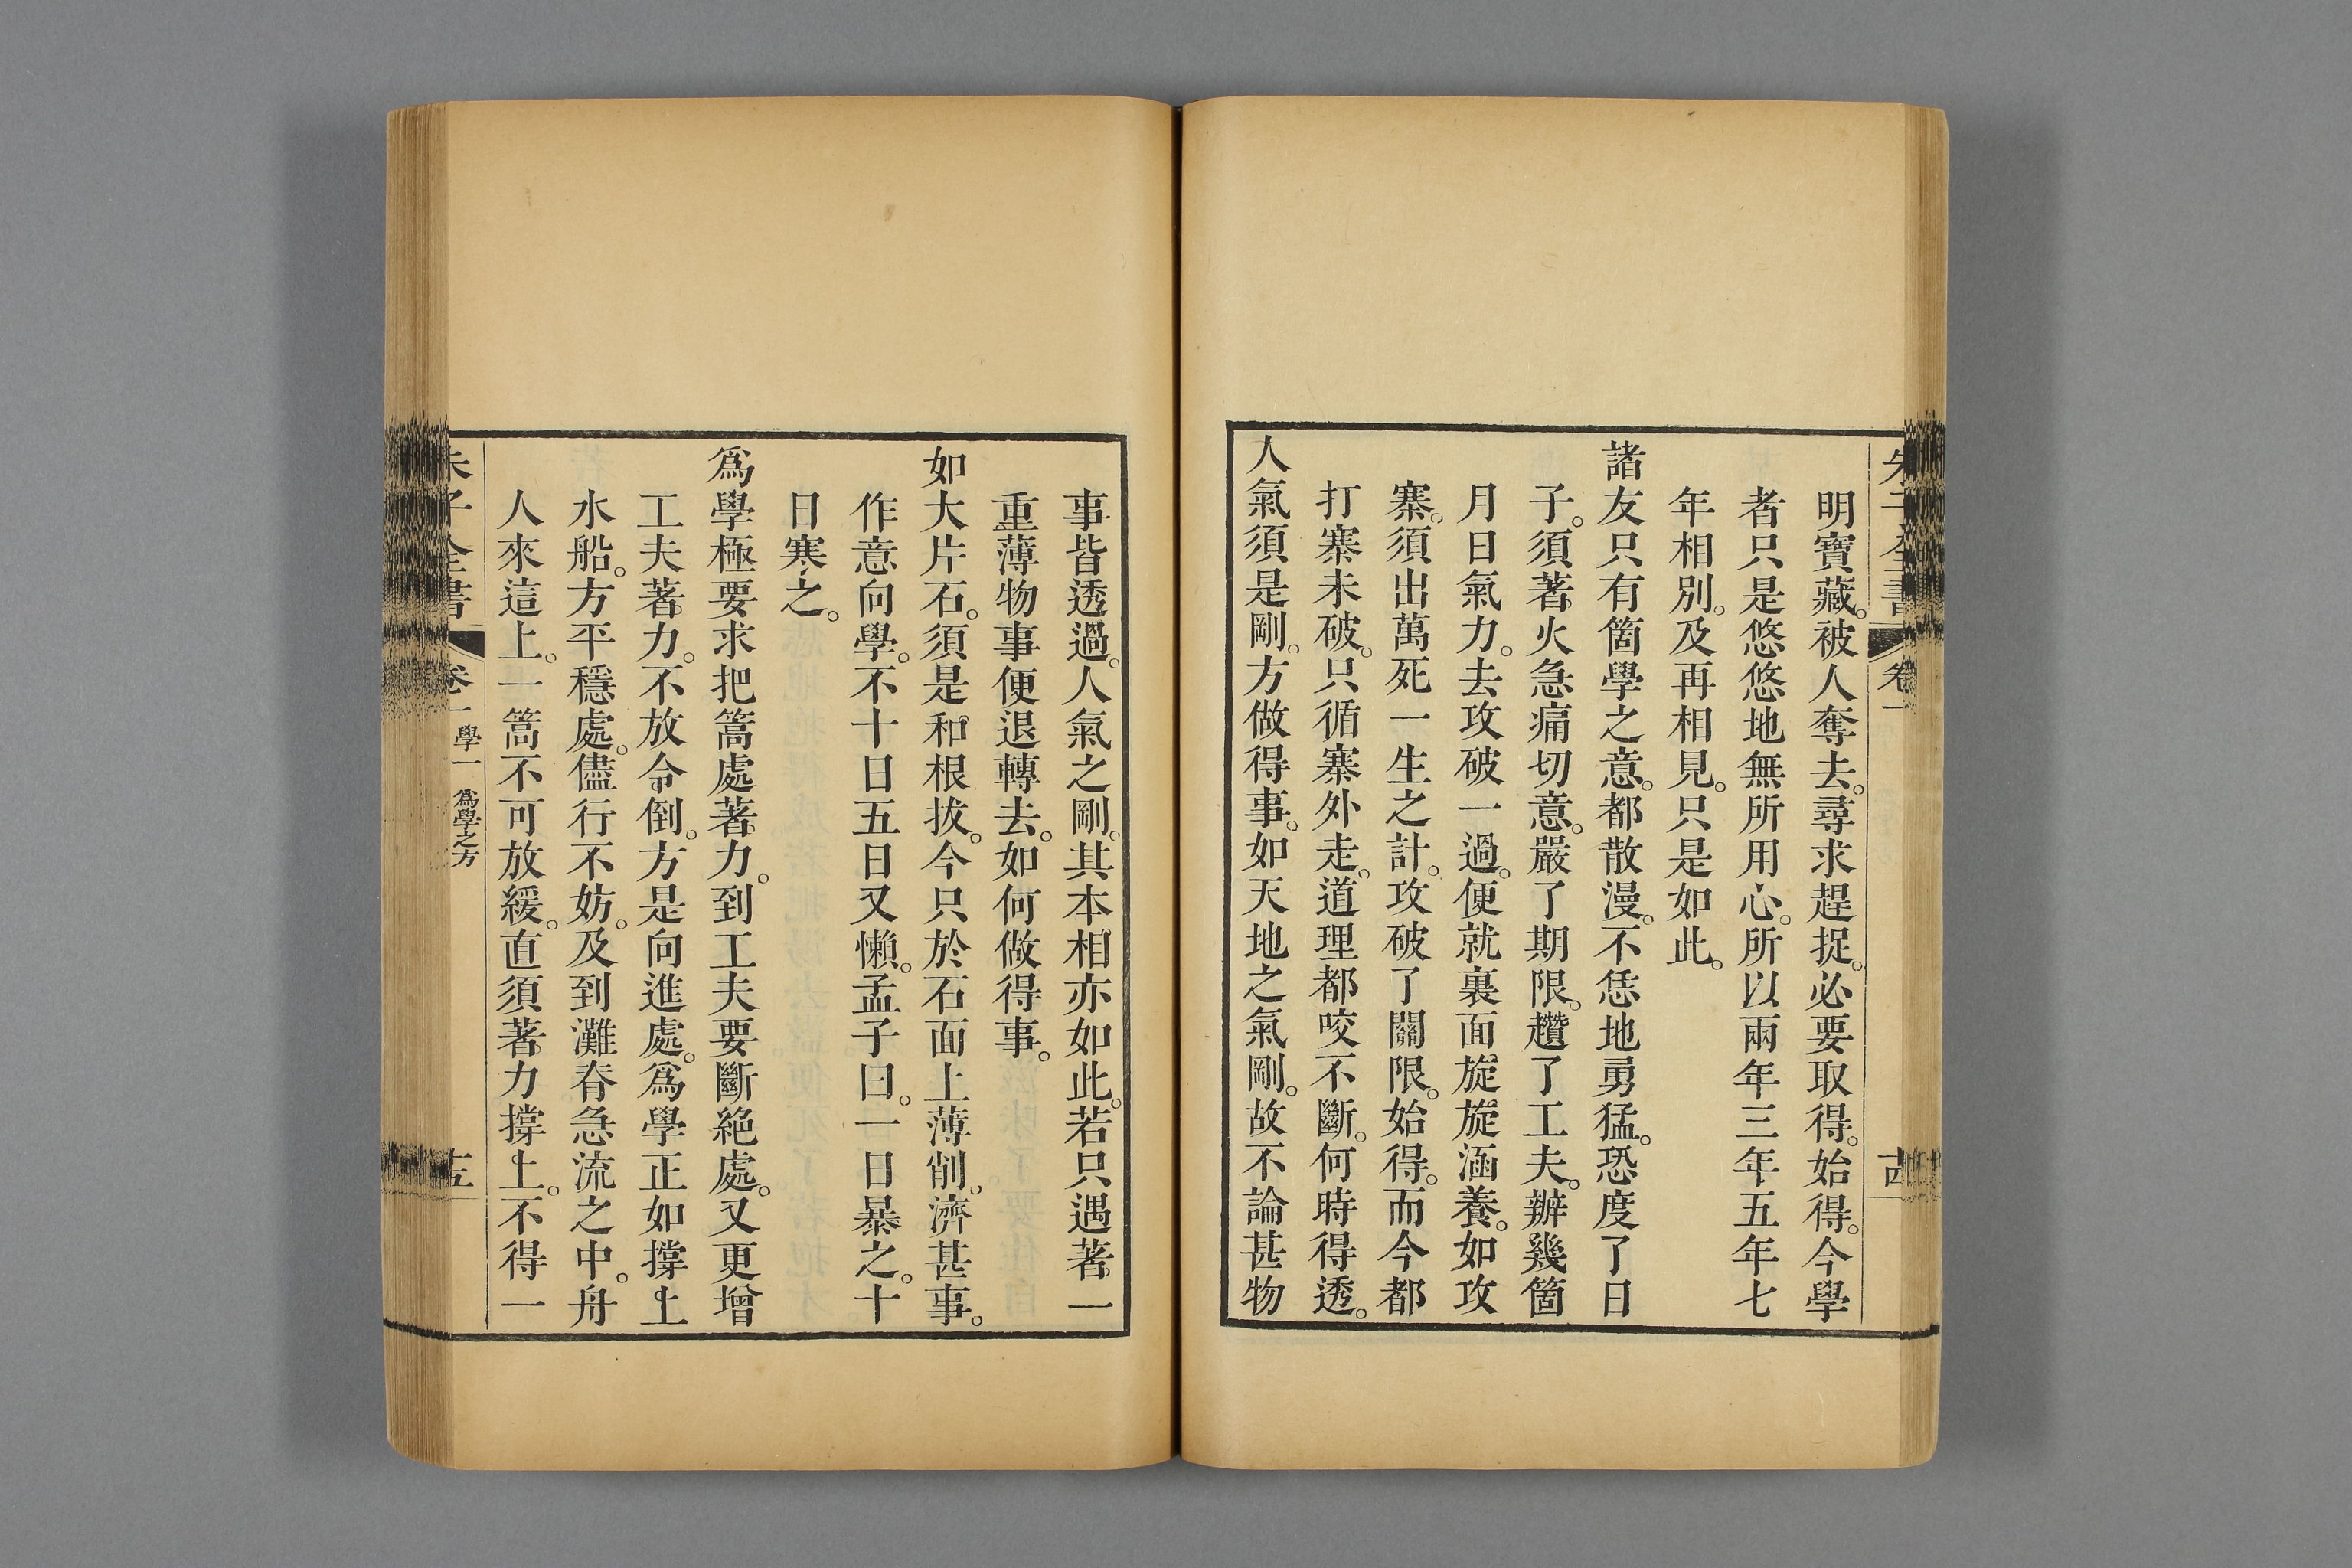 朱子全書 卷一 十四
明寶藏。被人奪去。尋求趕捉。必要取得。始得。今學
者只是悠悠地無所用心。所以兩年三年五年七
年相別。及再相見。只是如此。
諸友只有箇學之意。都散漫。不恁地勇猛。恐度了日
子。須著火急痛切意。嚴了期限。趲了工夫。辦幾箇
月日氣力。去攻破一過。便就裏面旋旋涵養。如攻
寨。須出萬死一生之計。攻破了關限。始得。而今都
打寨未破。只循寨外走。道理都咬不斷。何時得透。
人氣須是剛。方做得事。如天地之氣剛。故不論甚物
事皆透過。人氣之剛。其本相亦如此。若只遇著一
重薄物事便退轉去。如何做得事。
如大片石。須是和根拔。今只於石面上薄削。濟甚事。
作意向學。不十日五日又懶。孟子曰。一日暴之。十
日寒之。
爲學極要求把篙處著力。到工夫要斷絕處。又更增
工夫著力。不放令倒。方是向進處。爲學正如撐上
水船。方平穩處。儘行不妨。及到灘脊急流之中。舟
人來這上。一篙不可放緩。直須著力撐上。不得一
朱子全書 卷一 學一 爲學之方 十五